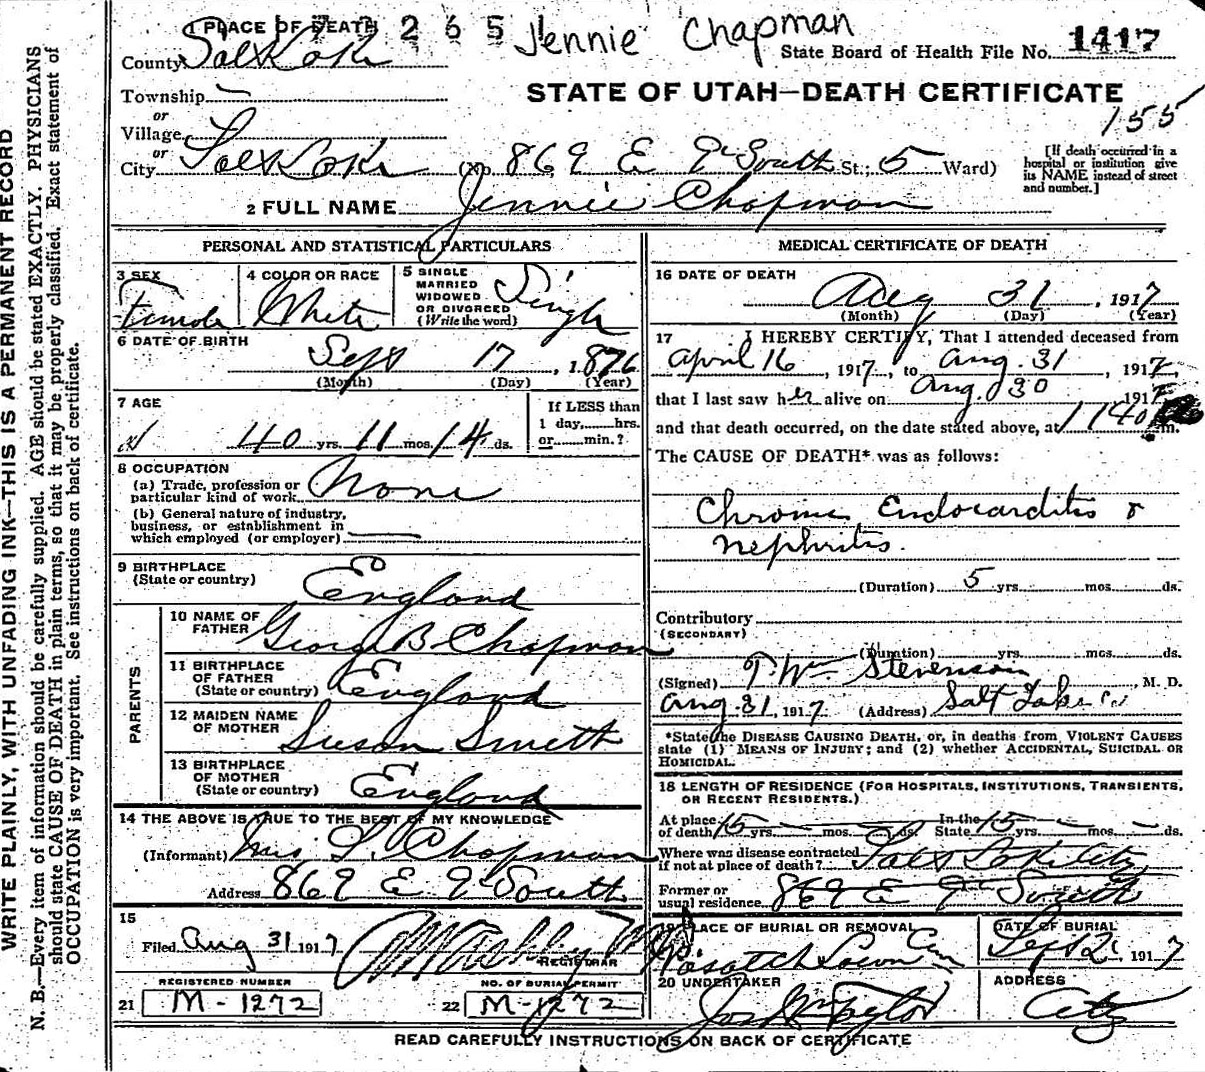 1 PLACE OF DEATH 2 6 5 Jennie Chapman
County Salt Lake State Board of Health File No. 1417
STATE OF UTAH—DEATH CERTIFICATE
Township —
155
or
Village
or
City Salt Lake (No. 869 E 9th South St.; 5 Ward)
[If death occurred in a hospital or institution give its NAME instead of street and number.]
2 FULL NAME Jennie Chapman
PERSONAL AND STATISTICAL PARTICULARS
3 SEX
Female
4 COLOR OR RACE
White
5 SINGLE
MARRIED
WIDOWED
OR DIVORCED
(Write the word)
Single
6 DATE OF BIRTH
Sept 17, 1876
(Month) (Day) (Year)
7 AGE
40 yrs. 11 mos. 14 ds.
If LESS than
1 day, hrs.
or min.?
8 OCCUPATION
(a) Trade, profession or
particular kind of work None
(b) General nature of industry,
business, or establishment in
which employed (or employer) —
9 BIRTHPLACE
(State or country) England
PARENTS
10 NAME OF
FATHER George B Chapman
11 BIRTHPLACE
OF FATHER
(State or country) England
12 MAIDEN NAME
OF MOTHER Susan Smith
13 BIRTHPLACE
OF MOTHER
(State or country) England
14 THE ABOVE IS TRUE TO THE BEST OF MY KNOWLEDGE
(Informant) Mrs S. Chapman
Address 869 E 9th South
15
Filed Aug 31 1917
REGISTRAR
REGISTERED NUMBER
21 M-1272
NO. OF BURIAL PERMIT
22 M-1272
MEDICAL CERTIFICATE OF DEATH
16 DATE OF DEATH
Aug 31, 1917
(Month) (Day) (Year)
17 I HEREBY CERTIFY, That I attended deceased from
April 16, 1917, to Aug. 31, 1917,
that I last saw her alive on Aug. 30 1917
and that death occurred, on the date stated above, at 1140 m.
The CAUSE OF DEATH* was as follows:
Chronic Endocarditis &
Nephritis.
(Duration) 5 yrs. mos. ds.
Contributory
(SECONDARY)
(Duration) yrs. mos. ds.
(Signed) T. Wm Stevenson, M. D.
Aug. 31, 1917 (Address) Salt Lake
*State the DISEASE CAUSING DEATH, or, in deaths from VIOLENT CAUSES
state (1) MEANS OF INJURY; and (2) whether ACCIDENTAL, SUICIDAL OR
HOMICIDAL.
18 LENGTH OF RESIDENCE (FOR HOSPITALS, INSTITUTIONS, TRANSIENTS,
OR RECENT RESIDENTS.)
At place
of death 15 yrs. — mos. — ds. In the State 15 yrs. — mos. — ds.
Where was disease contracted
if not at place of death? Salt Lake City
Former or
usual residence 869 E 9th South
19 PLACE OF BURIAL OR REMOVAL
Wasatch Lawn Cem
DATE OF BURIAL
Sept 2, 1917
20 UNDERTAKER
Jos Wm Taylor
ADDRESS
City
READ CAREFULLY INSTRUCTIONS ON BACK OF CERTIFICATE
WRITE PLAINLY, WITH UNFADING INK—THIS IS A PERMANENT RECORD
N. B.—Every item of information should be carefully supplied. AGE should be stated EXACTLY. PHYSICIANS
should state CAUSE OF DEATH in plain terms, so that it may be properly classified. Exact statement of
OCCUPATION is very important. See instructions on back of certificate.